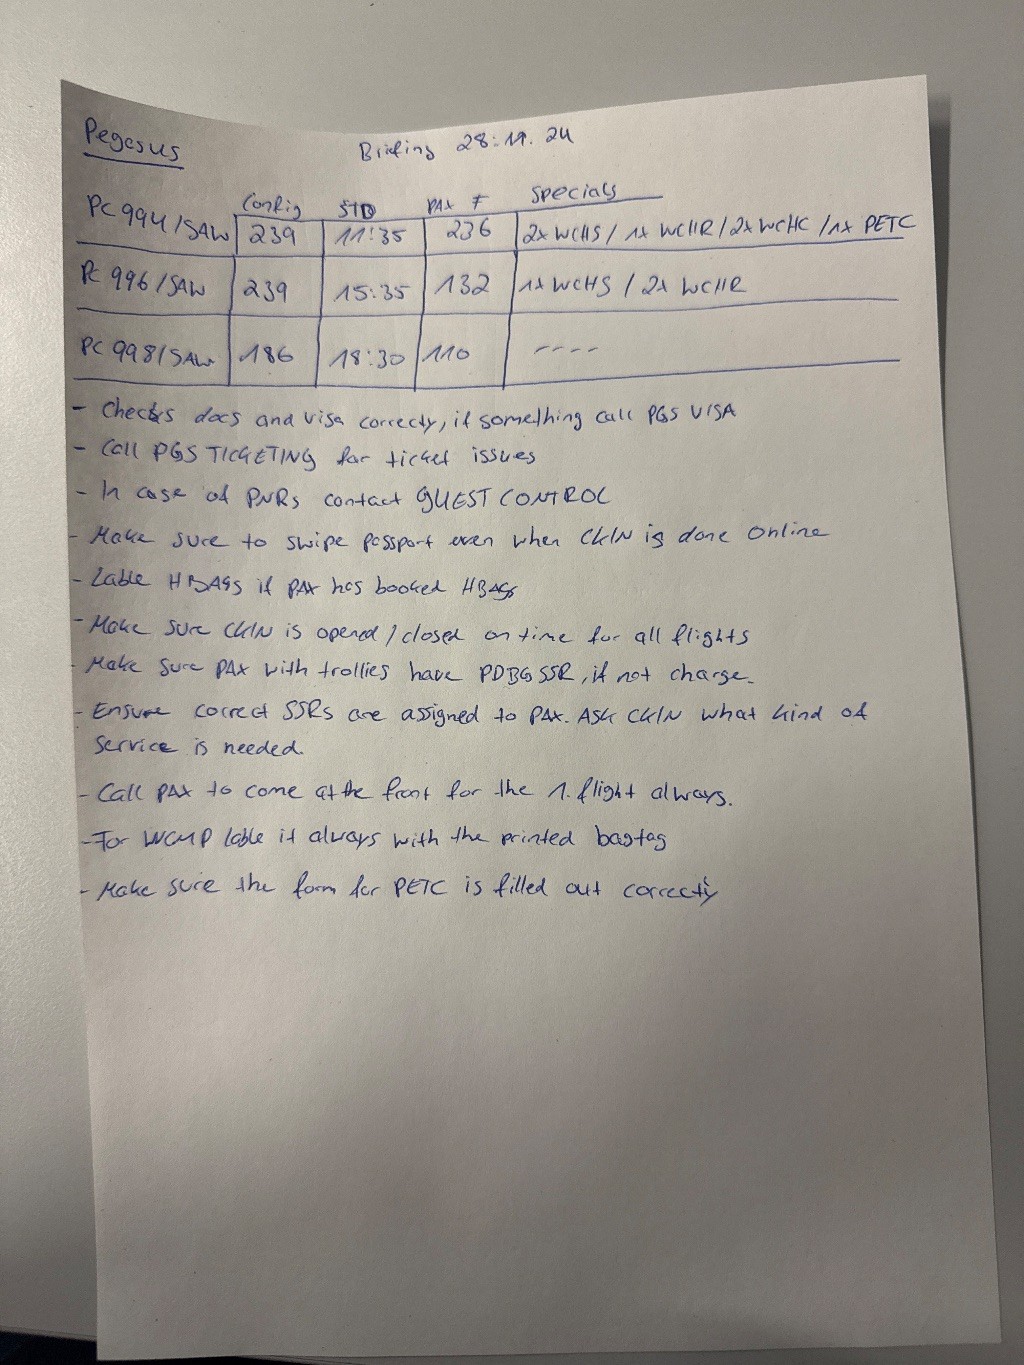 Pegasus
Briefing 28.11.24
Config STD PAX F Specials
PC 994/SAW 239 11:35 236 2x WCHS / 1x WCHR / 2x WCHC / 1x PETC
PC 996/SAW 239 15:35 132 1x WCHS / 2x WCHR
PC 998/SAW 186 18:30 110 ----
- Checks docs and visa correcty, if something call PGS VISA
- Call PGS TICKETING for ticket issues
- In case of PNRs contact GUEST CONTROL
- Make sure to swipe passport even when CKIN is done online
- Lable HBAGS if PAX has booked HBAGs
- Make sure CKIN is opened / closed on time for all flights
- Make sure PAX with trollies have PDBG SSR, if not charge.
- Ensure correct SSRs are assigned to PAX. ASK CKIN what kind of
service is needed.
- Call PAX to come at the front for the 1. flight always.
- For WCMP lable it always with the printed bagtag
- Make sure the form for PETC is filled out correctly